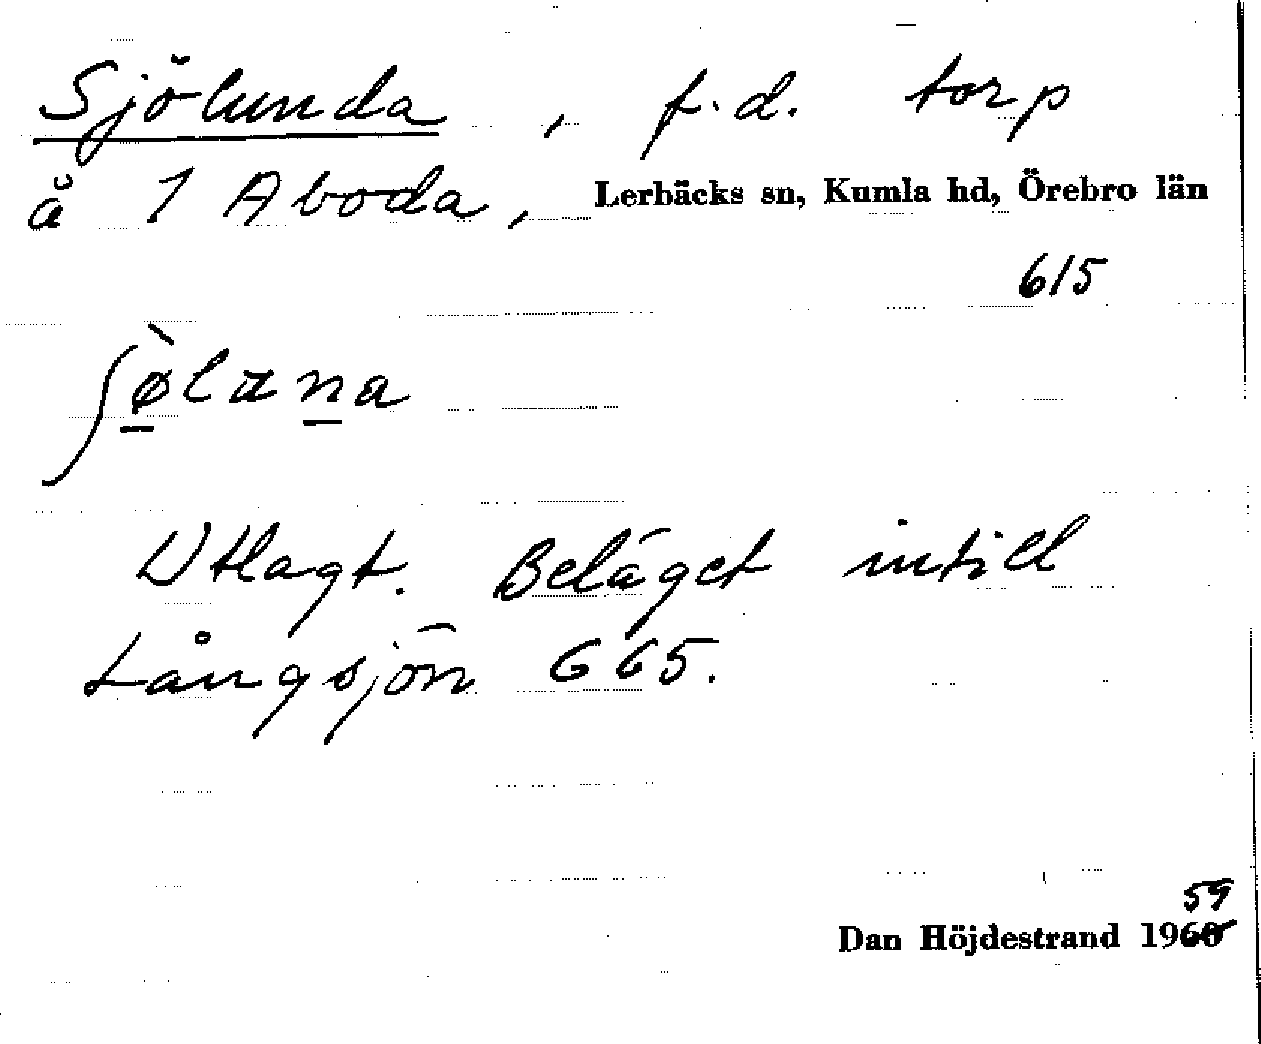 Sjölunda, f.d. torp
å 1 Aboda, Lerbäcks sn, Kumla hd, Örebro län
615
ʃø̀lana
Utlagt. Beläget intill
Långsjön 665.
59
Dan Höjdestrand 1960